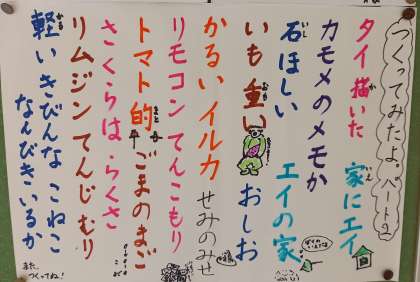 つくってみたよ。パート2
タイ描いた 家にエイ
カモメのメモか
石ほしい エイの家
いも重い おしお
かるいイルカ せみのみせ
リモコンてんこもり
トマト的 ごまのまご
さくらはらくさ
リムジンてんじむり
軽いきびんな こねこ
なんびきいるか
また、
つくってね!